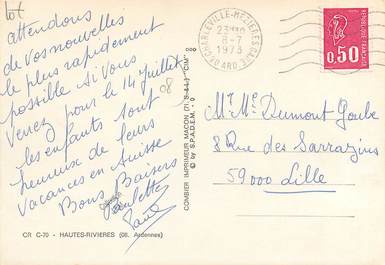 lot
attendons
de vos nouvelles
le plus rapidement
possible si vous
venez pour le 14 Juillet
08
les enfants sont
heureux de leurs
vacances en Suisse
Bons Baisers
Paulette
CR C-70 - HAUTES-RIVIERES (08. Ardennes)
COMBIER IMPRIMEUR MACON (71. S.-&-L.) "CIM"
© by S.P.A.D.E.M. - 0
CHARLEVILLE-MEZIERES GARE
8-7
1973
08 ARD
0,50
REPUBLIQUE FRANÇAISE
Mr Me Dumont Goube
8 Rue des Sarrazins
59000 Lille